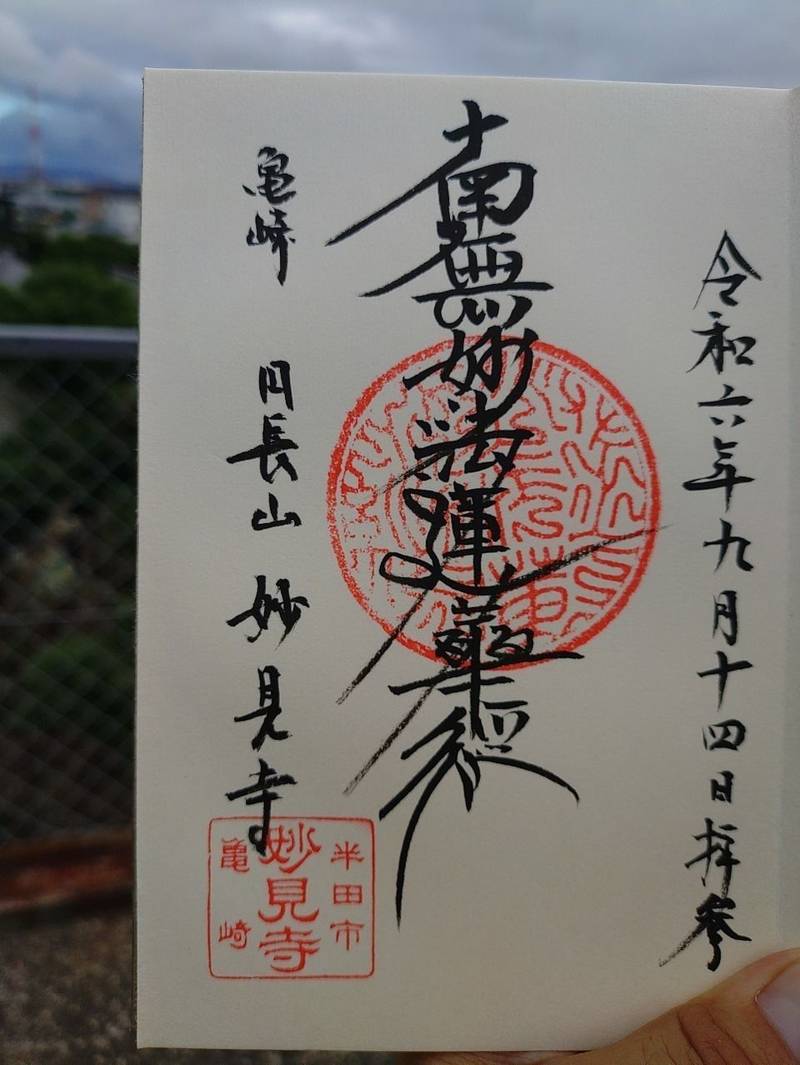 令和六年九月十四日拝参
南無妙法蓮華経
亀崎 円長山 妙見寺
半田市
妙見寺
亀崎